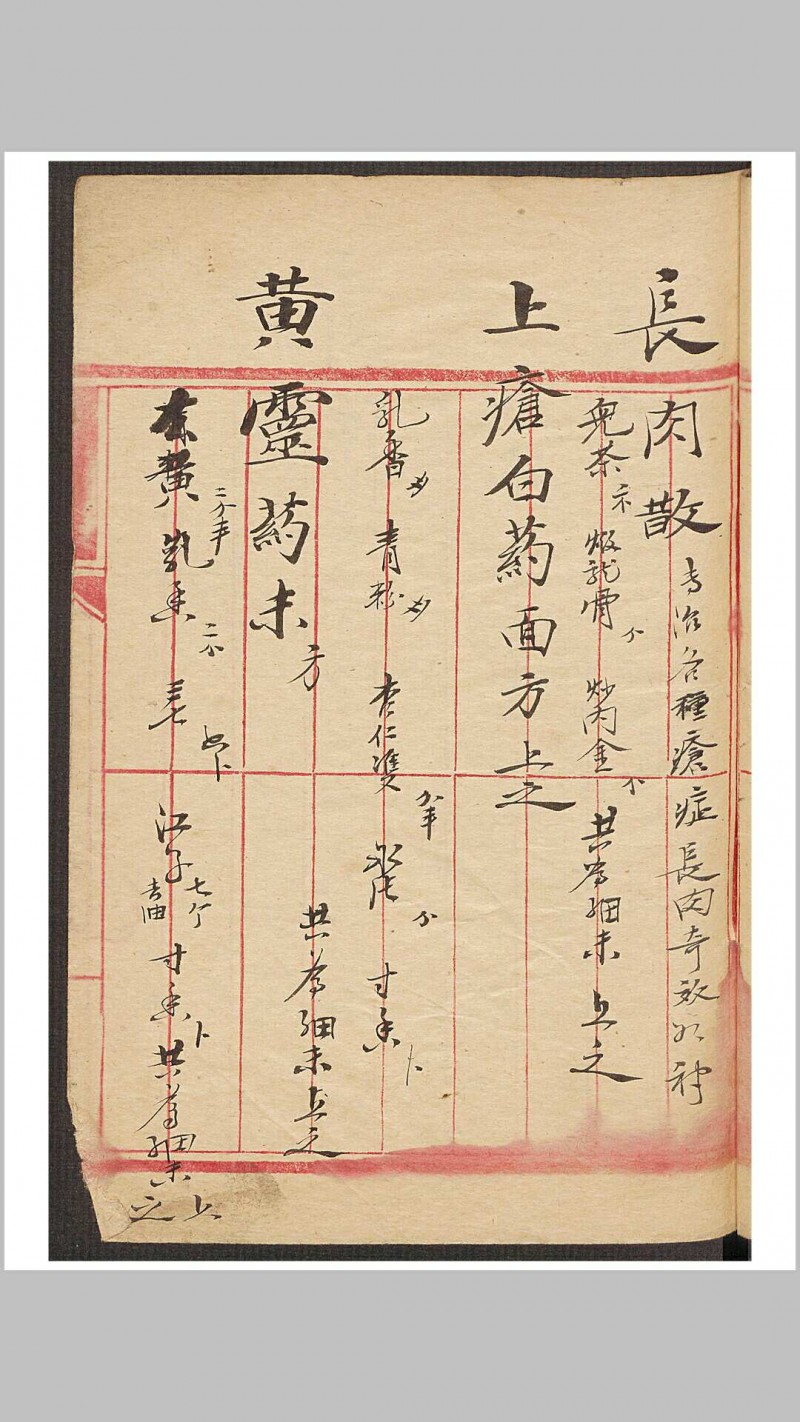 長肉散 專治各種瘡症長肉奇效如神
兒茶 煅龍骨 炒 金 共為細末上之
上瘡白葯面方上之
乳香 青粉 杏仁雙 分半 冰片 分 寸香
共為細末上之
黄靈葯末方
黄 二分半 乳香 二分 三七 江子 七个 去油 寸香 共為細末上之